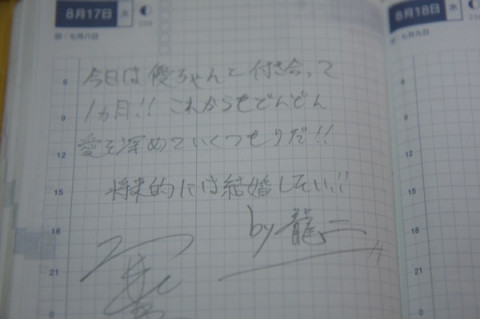 8月17日 水
旧:七月八日
今日は優ちゃんと付き合って
1ヵ月!! これからもどんどん
愛を深めていくつもりだ!!
将来的には結婚したい!!
by 龍二
6
9
12
15
18
21
0
8月18日
旧:七月九日
6
9
12
15
18
21
0